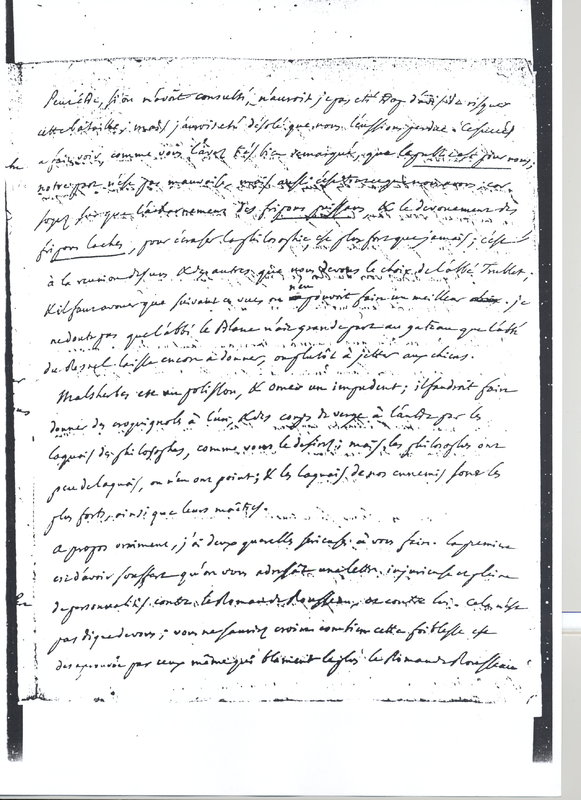 Peut être, si on m'avoit consulté, n'aurois je pas été d'avis de risquer
cette bataille; mais j'aurois été désolé que nous l'eussions perdue. Ce succès
a fait voir, comme vous l'avez très bien remarqué, que le public est pour nous,
notre
soyez sûr que l'acharnement des fripons puissans & le devouement des
fripons laches, pour écraser la philosophie, est plus fort que jamais; c'est
à la reunion des uns & des autres que nous devons le choix de l'abbé Trublet,
& il faut avouer que suivant ces vues on n'en pouvoit faire un meilleur. je
ne doute pas que l'abbé le Blanc n'ait grande part au gateau que l'abbé
du Resnel laisse encore à donner, ou plutôt à jetter aux chiens.
Malsherbes est un polisson, & Omer un impudent; il faudroit faire
donner des croquignoles à l'un, & des coups de verge à l'autre par les
laquais des philosophes, comme vous le desirez; mais les philosophes ont
peu de laquais, ou n'en ont point; & les laquais de nos ennemis sont les
plus forts, ainsi que leurs maîtres.
A propos vraiment, j'ai deux querelles à vous faire. la premiere
est d'avoir souffert qu'on vous adressât une lettre injurieuse et pleine
de personnalités contre le Roman de Rousseau, et contre lui. Cela n'est
pas digne de vous; vous ne sauriez croire combien cette foiblesse est
desaprouvée par ceux même qui blâment le plus le Roman de Rousseau